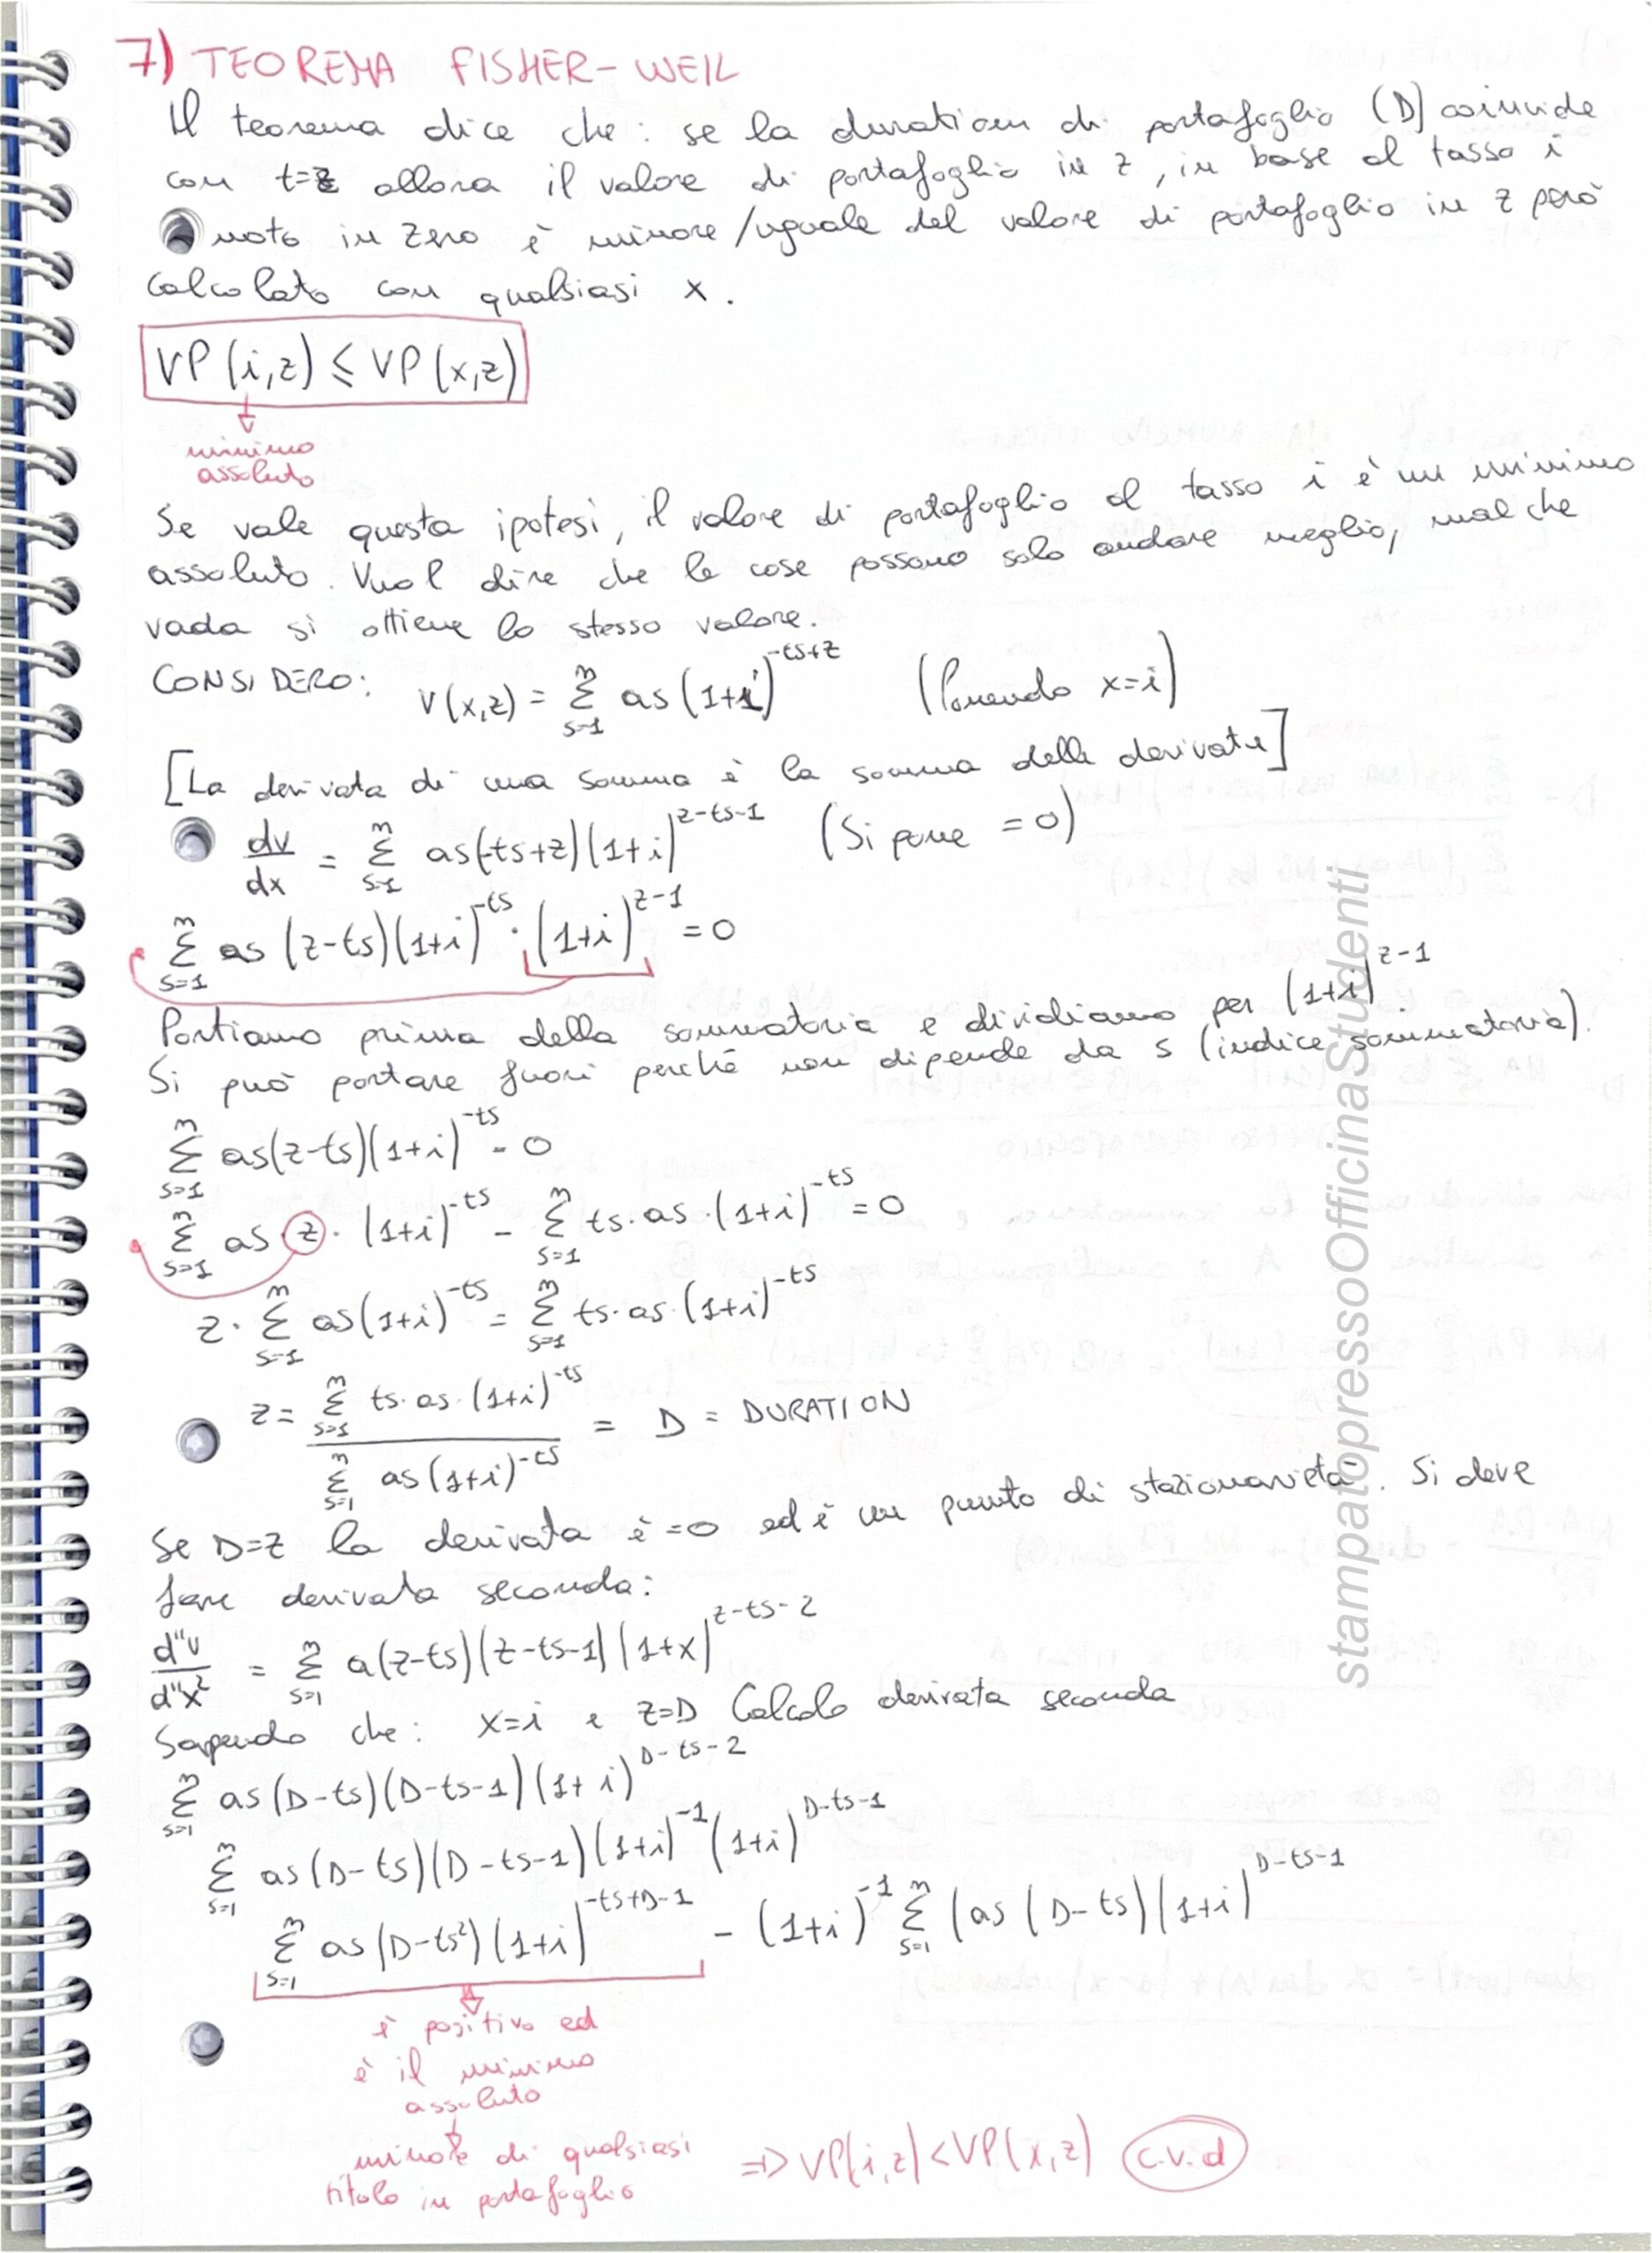 7) TEOREMA FISHER-WEIL
Il teorema dice che: se la duration di portafoglio (D) coincide
con t=z allora il valore di portafoglio in z, in base al tasso i
noto in zero è minore/uguale del valore di portafoglio in z però
calcolato con qualsiasi x.
VP(i,z) ≤ VP(x,z)
minimo
assoluto
Se vale questa ipotesi, il valore di portafoglio al tasso i è un minimo
assoluto. Vuol dire che le cose possono solo andare meglio, mal che
vada si ottiene lo stesso valore.
CONSIDERO: V(x,z) = Σ_{s=1}^{m} as(1+i)^{-ts+z} (Ponendo x=i)
[La derivata di una somma è la somma delle derivate]
dv/dx = Σ_{s=1}^{m} as(-ts+z)(1+i)^{z-ts-1} (Si pone =0)
Σ_{s=1}^{m} as(z-ts)(1+i)^{-ts}·(1+i)^{z-1} = 0
Portiamo prima della sommatoria e dividiamo per (1+i)^{z-1}
Si può portare fuori perché non dipende da s (indice sommatoria).
Σ_{s=1}^{m} as(z-ts)(1+i)^{-ts} = 0
Σ_{s=1}^{m} as·z·(1+i)^{-ts} - Σ_{s=1}^{m} ts·as·(1+i)^{-ts} = 0
z·Σ_{s=1}^{m} as(1+i)^{-ts} = Σ_{s=1}^{m} ts·as·(1+i)^{-ts}
z = Σ_{s=1}^{m} ts·as·(1+i)^{-ts} / Σ_{s=1}^{m} as(1+i)^{-ts} = D = DURATION
Se D=z la derivata è =0 ed è un punto di stazionarietà. Si deve
fare derivata seconda:
d"v/d"x² = Σ_{s=1}^{m} a(z-ts)(z-ts-1)(1+x)^{z-ts-2}
Sapendo che: x=i e z=D Calcolo derivata seconda
Σ_{s=1}^{m} as(D-ts)(D-ts-1)(1+i)^{D-ts-2}
Σ_{s=1}^{m} as(D-ts)(D-ts-1)(1+i)^{-1}(1+i)^{D-ts-1}
Σ_{s=1}^{m} as(D-ts²)(1+i)^{-ts+D-1} - (1+i)^{-1} Σ_{s=1}^{m} (as(D-ts)(1+i)^{D-ts-1}
è positivo ed
è il minimo
assoluto
minore di qualsiasi
titolo in portafoglio
⇒ VP(i,z) < VP(x,z) c.v.d
stampatopressoOfficinaStudenti